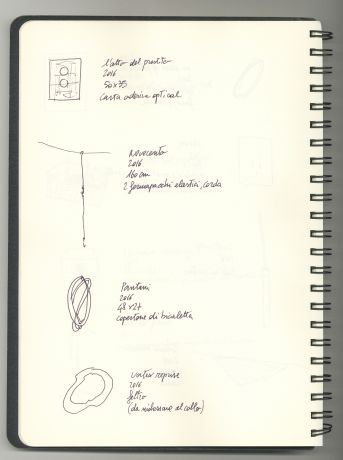 l'atto del prestito
2016
50x35
Carta adesiva optical
Novecento
2016
160 cm
2 fermapacchi elastici, corda
Pantani
2016
48x27
copertone di bicicletta
vortex reprise
2016
feltro
(da indossare al collo)